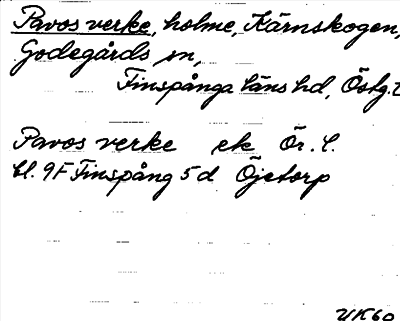 Pavos verke, holme, Kärnskogen,
Godegårds sn,
Finspånga läns hd, Östg.l
Pavos verke ek Ör. l.
bl. 9F Finspång 5d Öjetorp
UK60